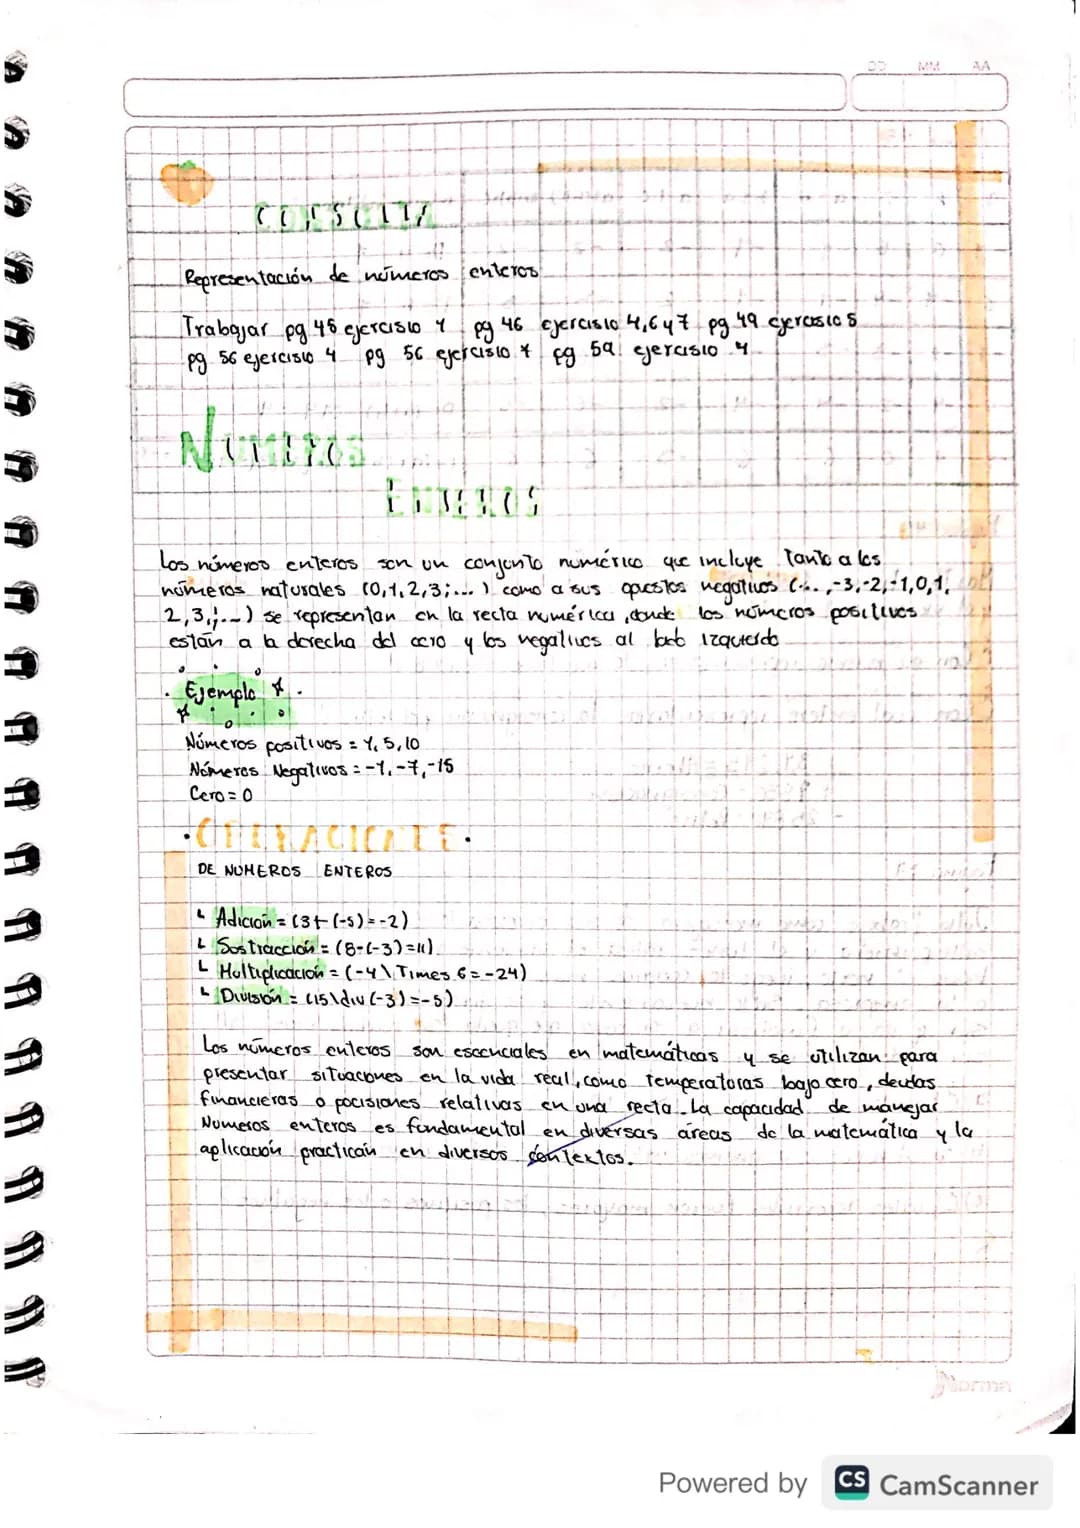 DD MM AA
CONSULTA
Representación de números enteros
Trabajar pg 45 ejercisio 4 pg 46 ejercisio 4,6 y 7 pg 49 ejercisio 5
pg 56 ejercisio 4 pg 56 ejercisio 7 pg 59 ejercisio 4
NUMEROS
ENTEROS
Los números enteros son un conjunto numérico que incluye Tanto a los
números naturales (0,1,2,3;...) como a sus opuestos negativos (...,-3,-2,-1,0,1,
2,3,;...) se representan en la recta numérica, donde los números positivos
están a la derecha del cero y los negativos al lado izquierdo
Ejemplo
Números positivos = 1, 5, 10
Números Negativos = -1, -7, -15
Cero = 0
DE NUMEROS ENTEROS
Adición = (3+(-5)=-2)
Sostracción = (8-(-3)=11)
Multiplicación = (-4\Times 6=-24)
División = (15\div(-3)=-5)
Los números enteros son escenciales en matemáticas y se utilizan para
presentar situaciones en la vida real, como Temperaturas bajo cero, deudas
financieras o pocisiones relativas en una recta. La capacidad de manejar
Numeros enteros es fundamental en diversas áreas de la matemática y la
aplicación practican en diversos contextos.
Norma
Powered by CS CamScanner